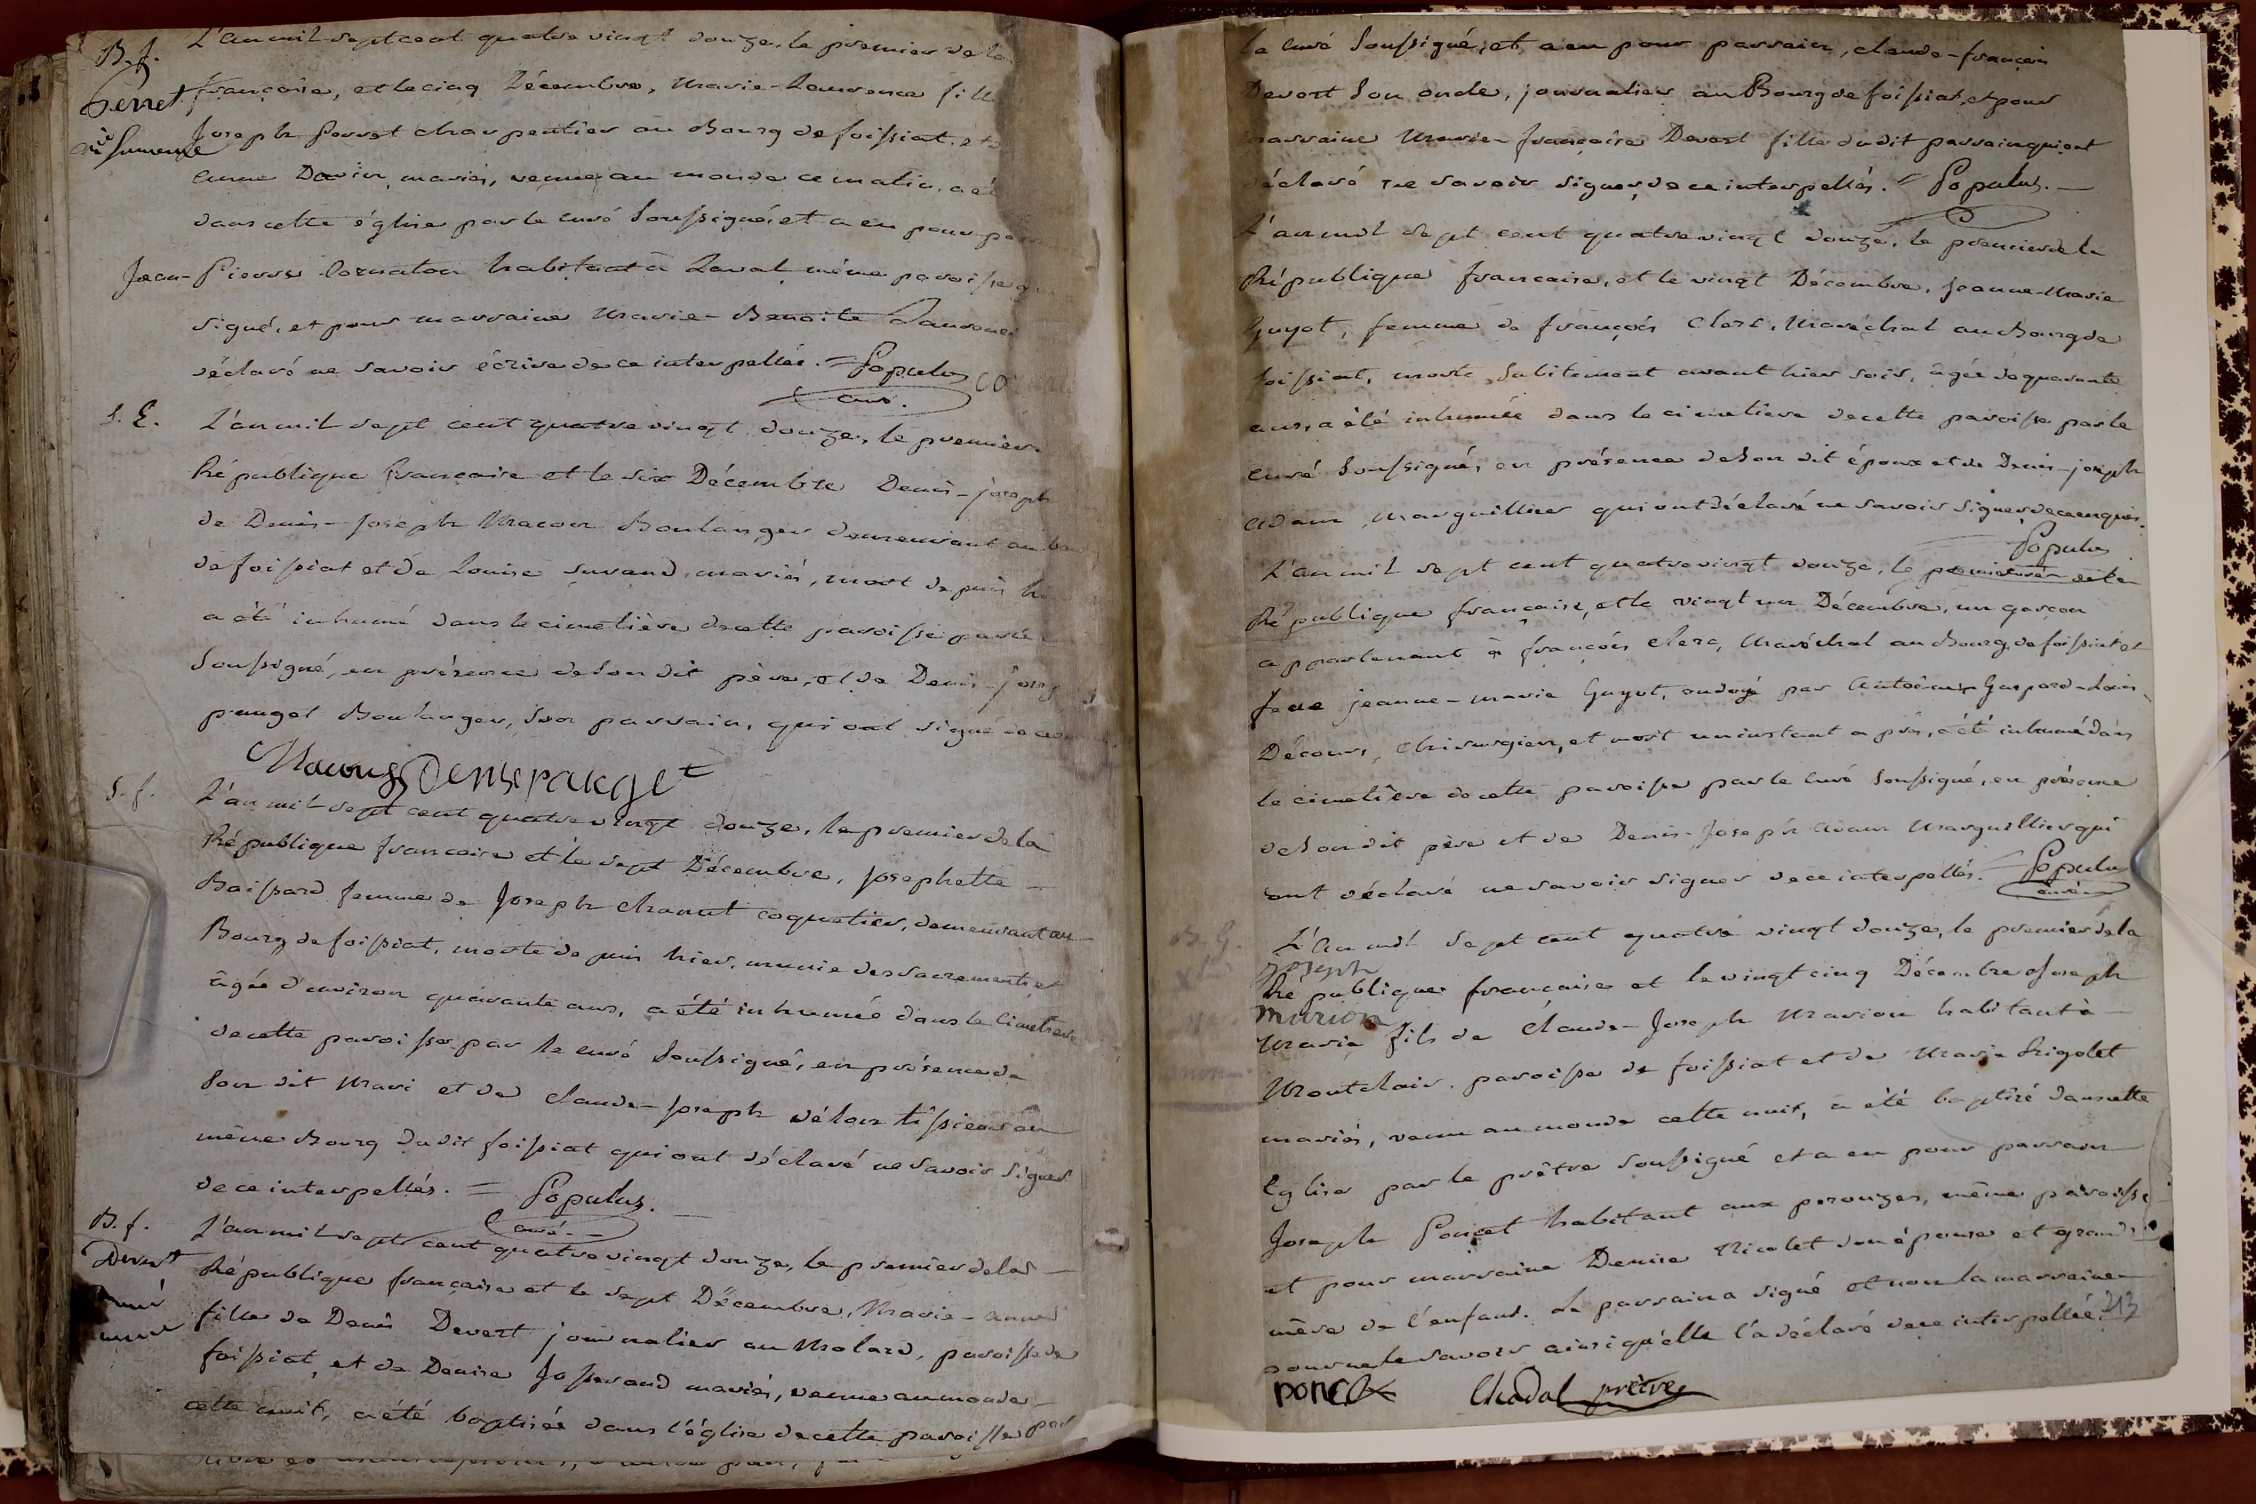 B. f.
L'an mil sept cent quatre vingt douze, le premier de la
française, et le cinq Décembre, Marie-Laurence fille
Joseph Perret charpentier au Bourg de foissiat, et
anne Davin mariés, venue au monde ce matin, a é
dans cette église par le curé Soussigné, et a eu pour par
Jean-Pierre Cornaton habitant à Laval même paroisse q
signé, et pour marraine Marie-Benoite
déclaré ne savoir écrire de ce interpellée. = Populus
curé.
S. E.
L'an mil sept cent quatre vingt douze, le premier
République française et le six Décembre Denis-joseph
de Denis-Joseph Macon Boulanger demeurant au bou
de foissiat et de Louise Surand, mariés, mort depuis h
a été inhumé dans le cimetière de cette paroisse par le
Soussigné, en présence de son dit père, et de Denis-jos
pauget Boulanger, son parrain, qui ont signé
Macong Denis pauget
S. f.
L'an mil sept cent quatre vingt douze, le premier de la
République française et le sept Décembre, Josephette
Baissard femme de Joseph Chanut coquetier, demeurant au
Bourg de foissiat, morte depuis hier, munie des sacrements et
âgée d'environ quarante ans, a été inhumée dans le Cimetiere
de cette paroisse par le curé Soussigné, en présence de
son dit Mari et de Claude-joseph tissier au
même Bourg du dit foissiat qui ont déclaré ne savoir signer
de ce interpellés. = Populus.
curé
B. f.
Devert
L'an mil sept cent quatre vingt douze, le premier de la
République française et le sept Décembre, Marie-anne
fille de Denis Devert journalier au Molard, paroisse de
foissiat, et de Denise Josserand mariés, venue au monde
cette nuit, a été baptisée dans l'église de cette paroisse par
le curé Soussigné, et a eu pour parrain, claude-françois
Devert Son oncle, journalier au Bourg de foissiat, et pour
marraine Marie-françoise Devert fille du dit parrain qui ont
déclaré ne savoir signer de ce interpellés. = Populus.
L'an mil sept cent quatre vingt douze, le premier de la
République française, et le vingt Décembre, Jeanne-Marie
Guyot, femme de françois Clerc, Maréchal au Bourg de
foissiat, morte Subitement avant hier soir, âgée de quarante
ans, a été inhumée dans le cimetiere de cette paroisse par le
curé Soussigné, en présence de Son dit époux et de Denis-joseph
adam, Marguillier qui ont déclaré ne savoir signer de ce enquis.
Populus
L'an mil sept cent quatre vingt douze, le premier de la
République française, et le vingt un Décembre, un garcon
appartenant à françois Clerc, Maréchal au Bourg de foissiat et
feue jeanne-marie Guyot, ondoyé par Antoine-Gaspard-Loüis
Décours, Chirurgien, et mort un instant après, a été inhumé dans
le cimetière de cette paroisse par le curé Soussigné, en présence
de Son dit père et de Denis-Joseph adam Marguillier qui
ont déclaré ne savoir signer de ce interpellés. Populus
curé
B. G.
L'an mil Sept cent quatre vingt douze, le premier de la
joseph
République française et le vingt cinq Décembre Joseph
marion
Marie fils de Claude-Joseph Marion habitant à
Montclair, paroisse de foissiat et de Marie Rigolet
mariés, venu au monde cette nuit, a été baptisé dans cette
Eglise par le prêtre Soussigné et a eu pour parrain
Joseph Poncet habitant aux perouzes, même paroisse
et pour marraine Denise Nicolet son épouse et grand
mère de l'enfant. Le parrain a signé et non la marraine
pour ne le savoir ainsi qu'elle l'a déclaré de ce interpellée. 213
poncet Chadal prêtre